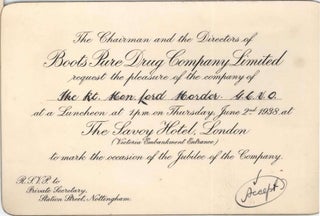 The Chairman and the Directors of
Boots Pure Drug Company Limited
request the pleasure of the company of
The Rt. Hon. Lord Horder G.C.V.O.
at a Luncheon at 1 p.m. on Thursday, June 2nd 1938, at
The Savoy Hotel, London
(Victoria Embankment Entrance)
to mark the occasion of the Jubilee of the Company.
R.S.V.P. to
Private Secretary,
Station Street, Nottingham.
Accept